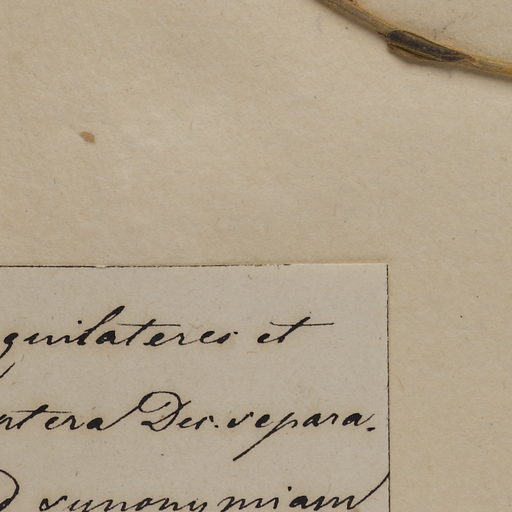 quilateres et
rtera Dec. separa-
d synonymiam